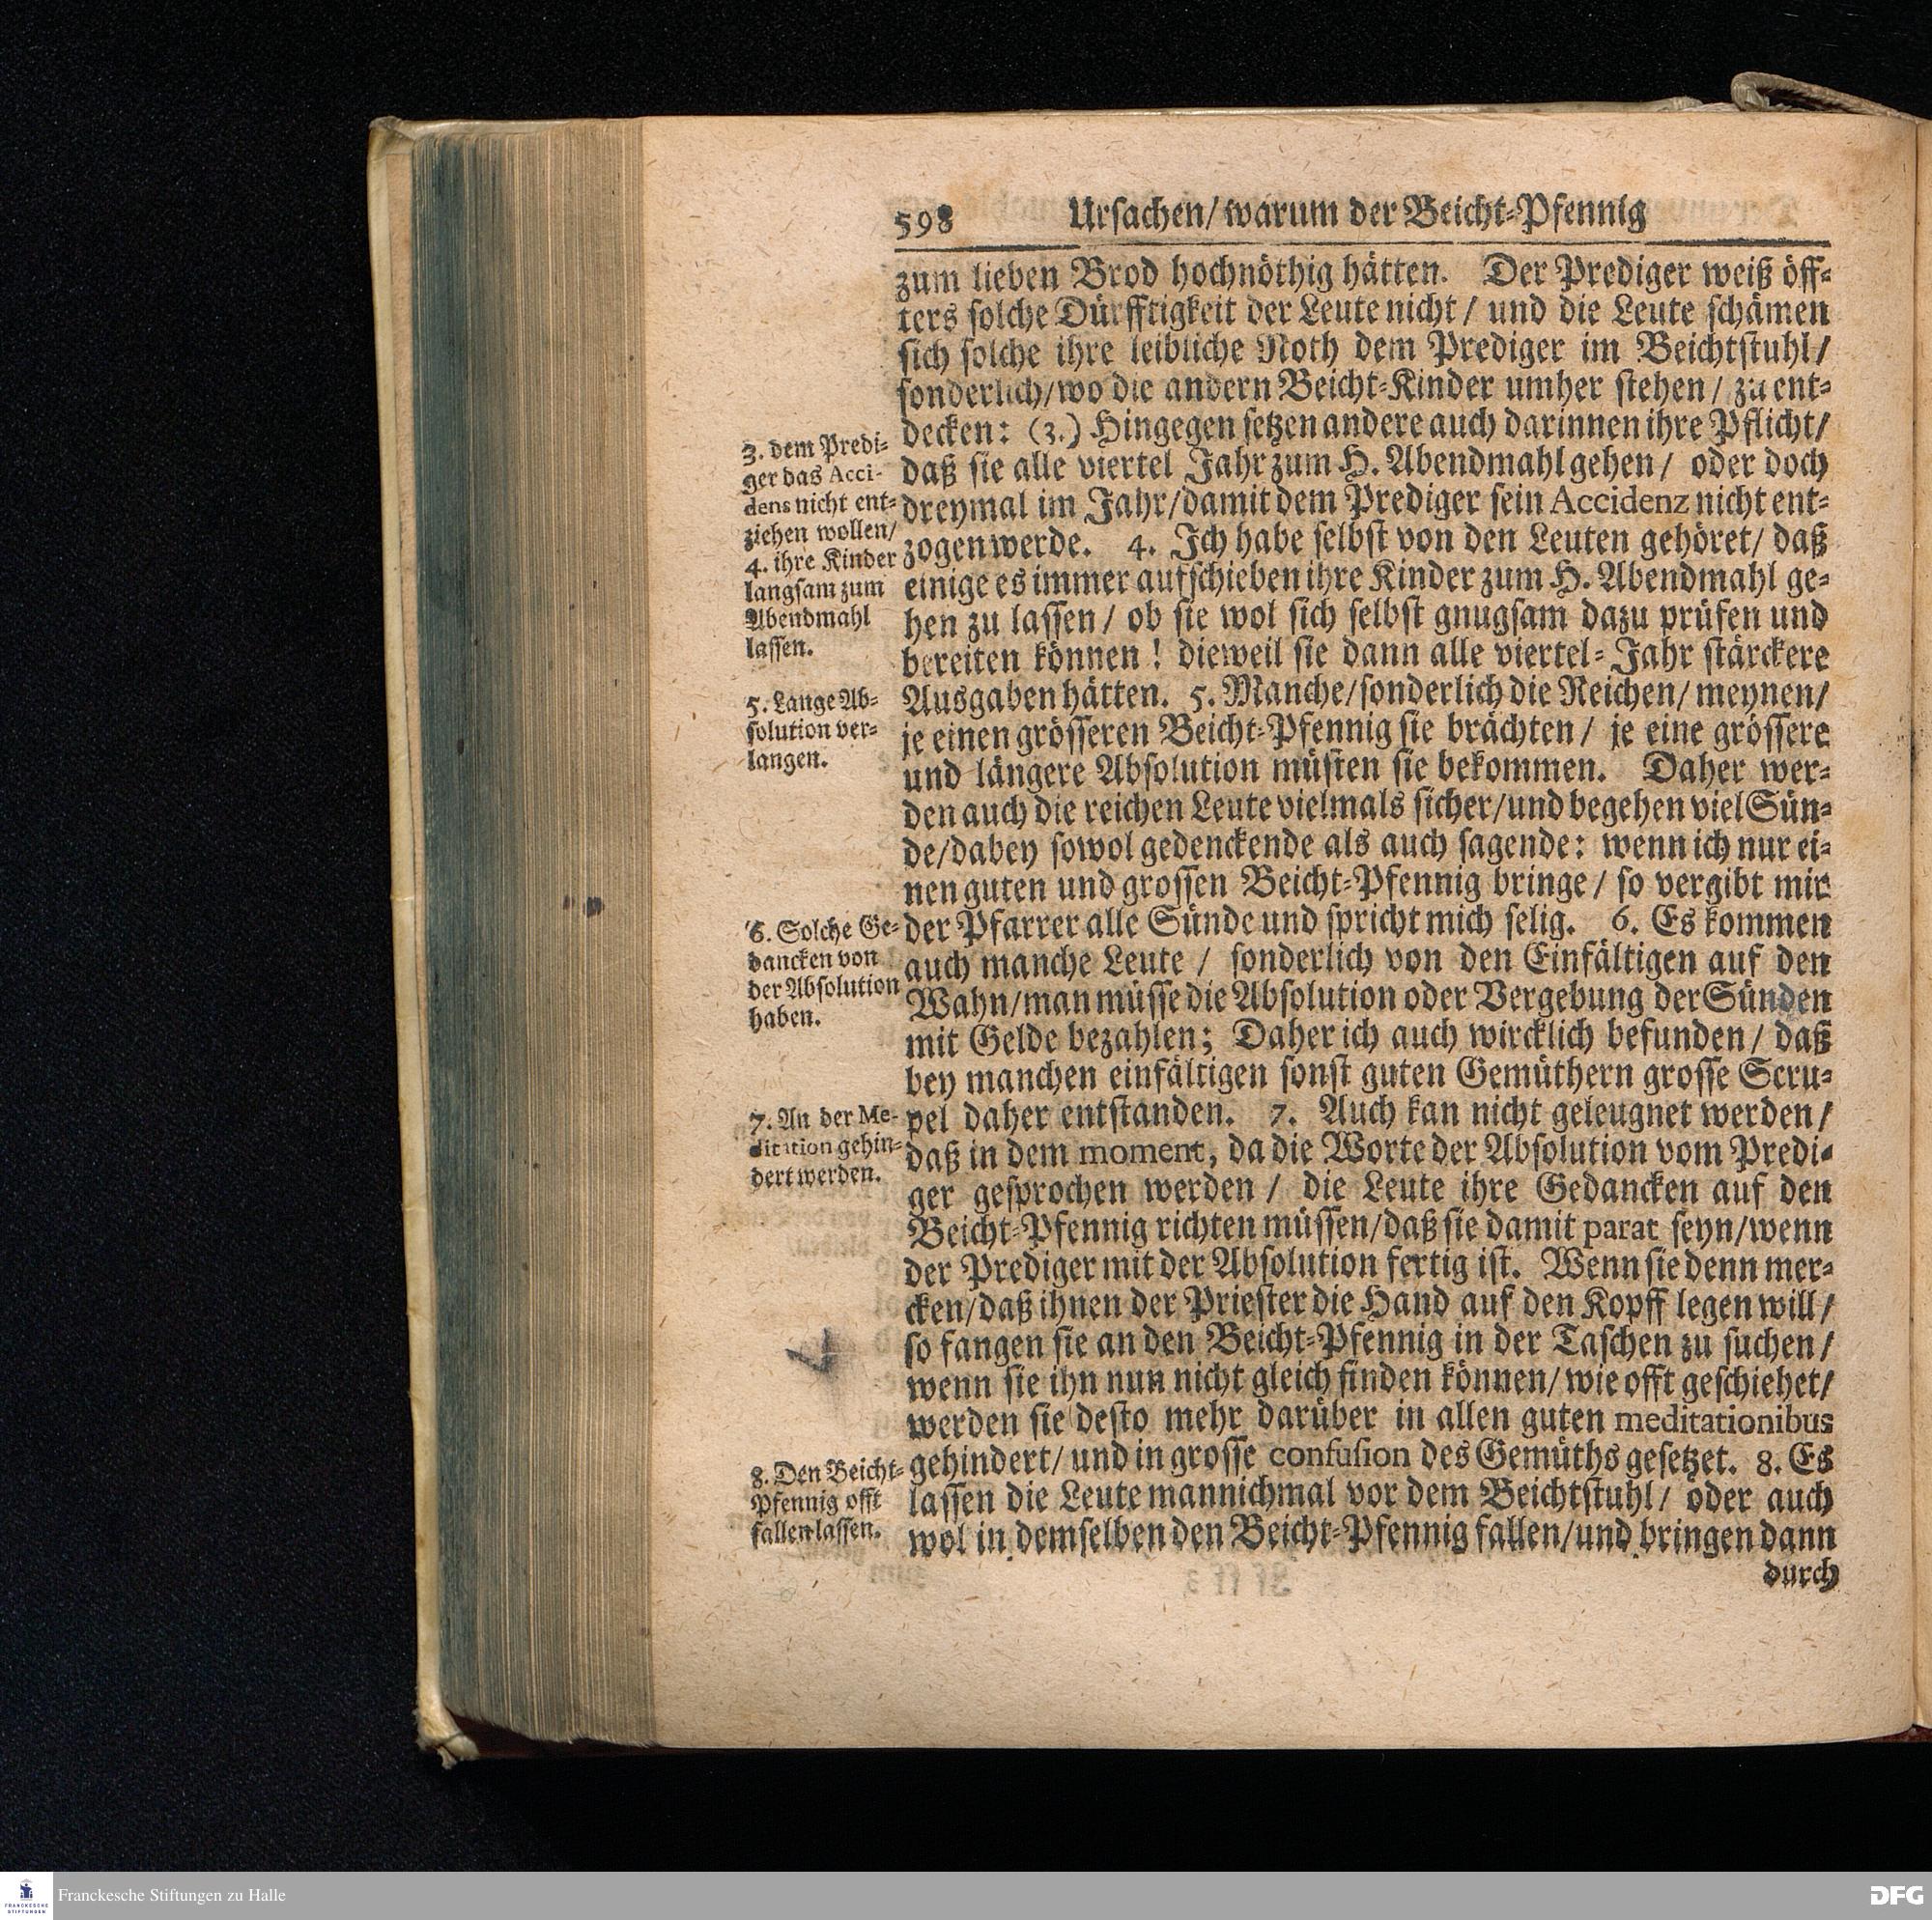 598 Ursachen/ warum der Beicht-Pfennig
zum lieben Brod hochnöthig hätten. Der Prediger weiß öff-
ters solche Dürfftigkeit der Leute nicht / und die Leute schämen
sich solche ihre leibliche Noth dem Prediger im Beichtstuhl/
sonderlich/wo die andern Beicht-Kinder umher stehen / zu ent-
decken: (3.) Hingegen setzen andere auch darinnen ihre Pflicht/
daß sie alle viertel Jahr zum H. Abendmahl gehen / oder doch
dreymal im Jahr/damit dem Prediger sein Accidenz nicht ent-
zogen werde. 4. Ich habe selbst von den Leuten gehöret/ daß
einige es immer aufschieben ihre Kinder zum H. Abendmahl ge-
hen zu lassen / ob sie wol sich selbst gnugsam dazu prüfen und
bereiten können ! dieweil sie dann alle viertel-Jahr stärckere
Ausgaben hätten. 5. Manche/sonderlich die Reichen/ meynen/
je einen grösseren Beicht-Pfennig sie brächten / je eine grössere
und längere Absolution müsten sie bekommen. Daher wer-
den auch die reichen Leute vielmals sicher/und begehen viel Sün-
de/dabey sowol gedenckende als auch sagende: wenn ich nur ei-
nen guten und grossen Beicht-Pfennig bringe / so vergibt mir
der Pfarrer alle Sünde und spricht mich selig. 6. Es kommen
auch manche Leute / sonderlich von den Einfältigen auf den
Wahn/man müsse die Absolution oder Vergebung der Sünden
mit Gelde bezahlen; Daher ich auch wircklich befunden / daß
bey manchen einfältigen sonst guten Gemüthern grosse Scru-
pel daher entstanden. 7. Auch kan nicht geleugnet werden /
daß in dem moment, da die Worte der Absolution vom Predi-
ger gesprochen werden / die Leute ihre Gedancken auf den
Beicht-Pfennig richten müssen/daß sie damit parat seyn/wenn
der Prediger mit der Absolution fertig ist. Wenn sie denn mer-
cken/daß ihnen der Priester die Hand auf den Kopff legen will /
so fangen sie an den Beicht-Pfennig in der Taschen zu suchen /
wenn sie ihn nun nicht gleich finden können/ wie offt geschiehet/
werden sie desto mehr darüber in allen guten meditationibus
gehindert/ und in grosse confusion des Gemüths gesetzet. 8. Es
lassen die Leute mannichmal vor dem Beichtstuhl / oder auch
wol in demselben den Beicht-Pfennig fallen/und bringen dann
durch
3. dem Predi-
ger das Acci-
dens nicht ent-
ziehen wollen/
4. ihre Kinder
langsam zum
Abendmahl
lassen.
5. Lange Ab-
solution ver-
langen.
6. Solche Ge-
dancken von
der Absolution
haben.
7. An der Me-
ditation gehin-
dert werden.
8. Den Beicht-
Pfennig offt
fallen lassen.
FRANCKESCHE
STIFTUNGEN
Franckesche Stiftungen zu Halle
DFG